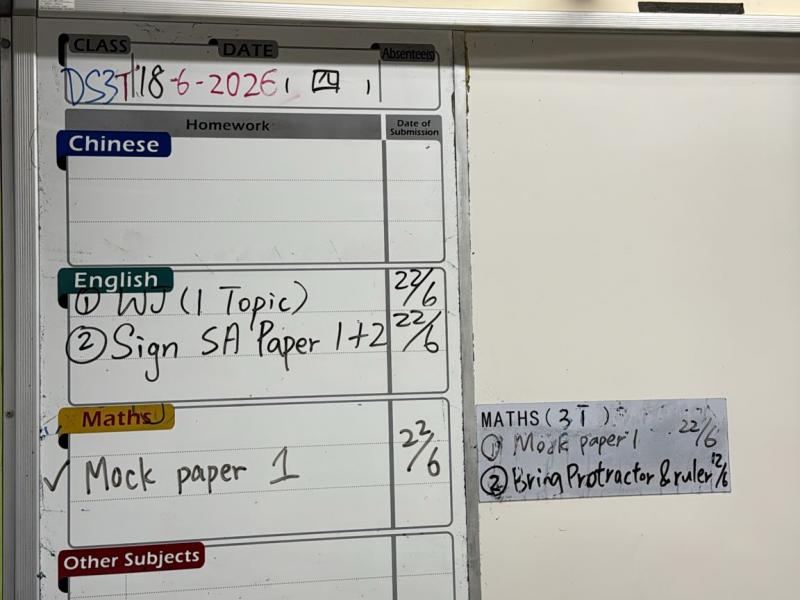 CLASS DATE Absentee(s)
DS3T 18-6-2026, 四,
Homework Date of Submission
Chinese
English
① WJ (1 Topic) 22/6
② Sign SA Paper 1+2 22/6
Maths
✓ Mock paper 1 22/6
Other Subjects
MATHS (3T)
① Mock paper 1 22/6
② Bring Protractor & ruler 12/6